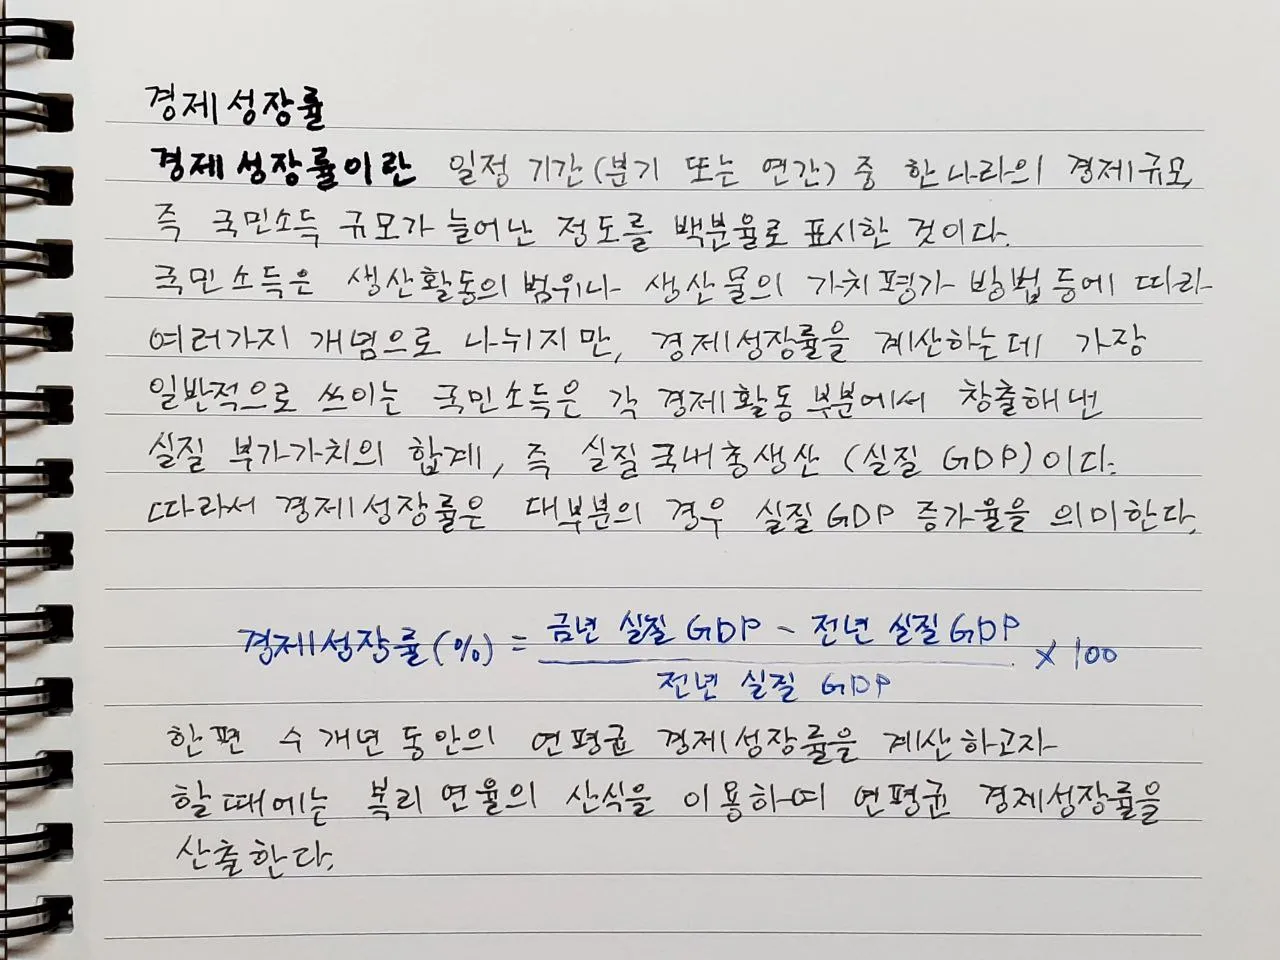 경제성장률
경제성장률이란 일정 기간(분기 또는 연간) 중 한 나라의 경제규모,
즉 국민소득 규모가 늘어난 정도를 백분율로 표시한 것이다.
국민소득은 생산활동의 범위나 생산물의 가치평가 방법 등에 따라
여러가지 개념으로 나뉘지만, 경제성장률을 계산하는데 가장
일반적으로 쓰이는 국민소득은 각 경제활동 부분에서 창출해낸
실질 부가가치의 합계, 즉 실질국내총생산 (실질 GDP)이다.
따라서 경제성장률은 대부분의 경우 실질 GDP 증가율을 의미한다.
금년 실질 GDP - 전년 실질 GDP
경제성장률(%) = × 100
전년 실질 GDP
한편 수 개년 동안의 연평균 경제성장률을 계산하고자
할 때에는 복리 연율의 산식을 이용하여 연평균 경제성장률을
산출한다.